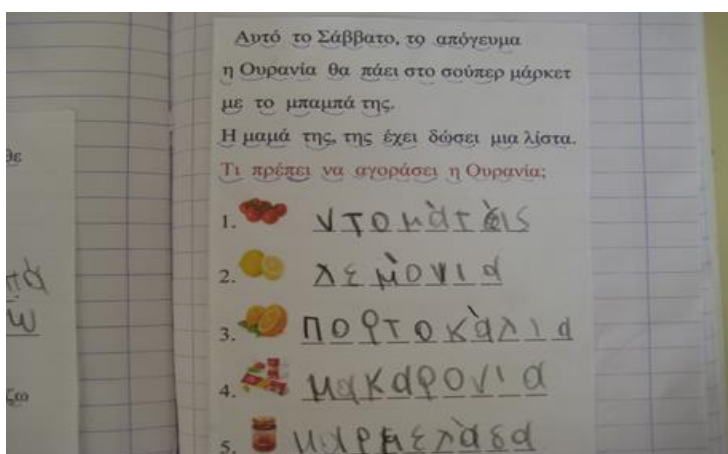 Αυτό το Σάββατο, το απόγευμα
η Ουρανία θα πάει στο σούπερ μάρκετ
με το μπαμπά της.
Η μαμά της, της έχει δώσει μια λίστα.
Τι πρέπει να αγοράσει η Ουρανία;
1. ντομάτεις
2. λεμόνια
3. πορτοκάλια
4. μακαρονια
5. μαρμελάδα